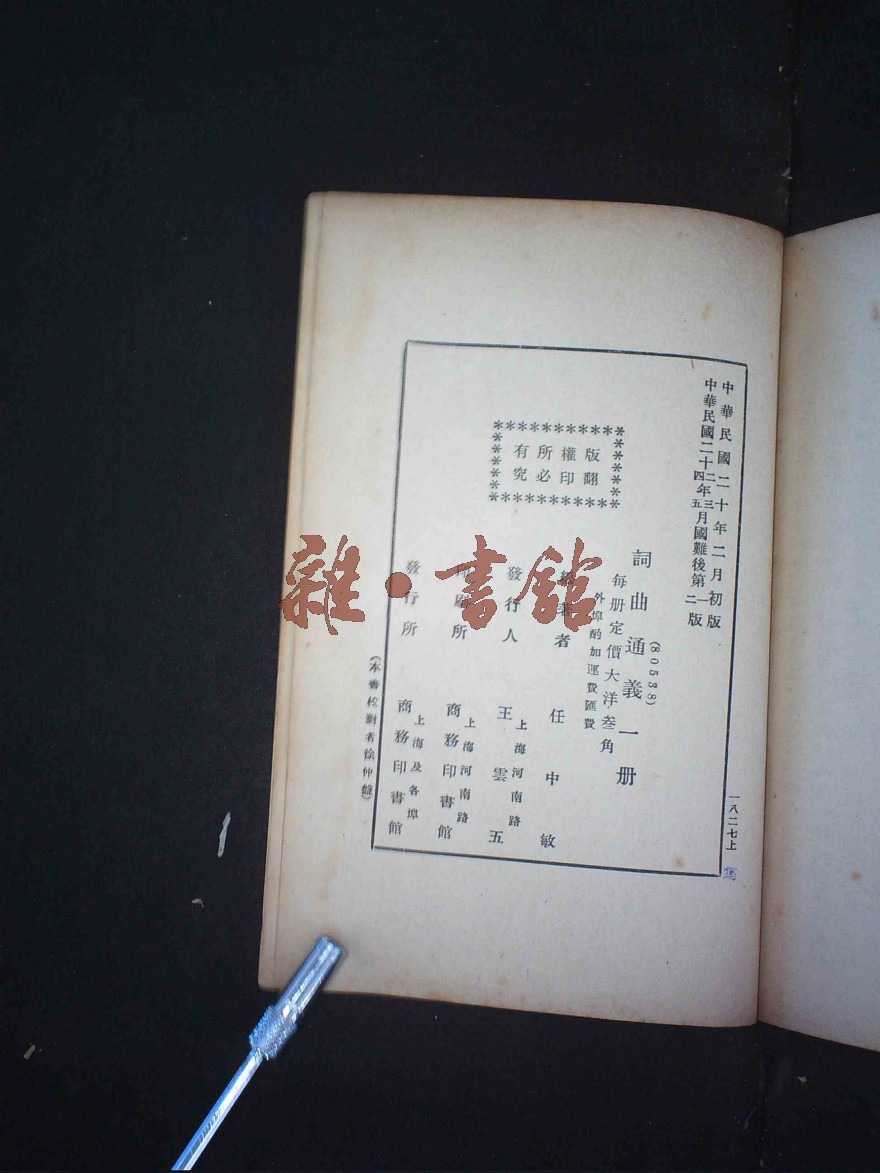 中華民國二十年二月初版
中華民國二十二四年三五月國難後第一二版
(80538)
詞曲通義一册
每册定價大洋叁角
外埠酌加運費匯費
版權所有
翻印必究
著者 任中敏
發行人 上海河南路 王雲五
所 上海河南路 商務印書館
發行所 上海及各埠 商務印書館
(本書校對者徐仲盤)
一八二七上
雜·書館